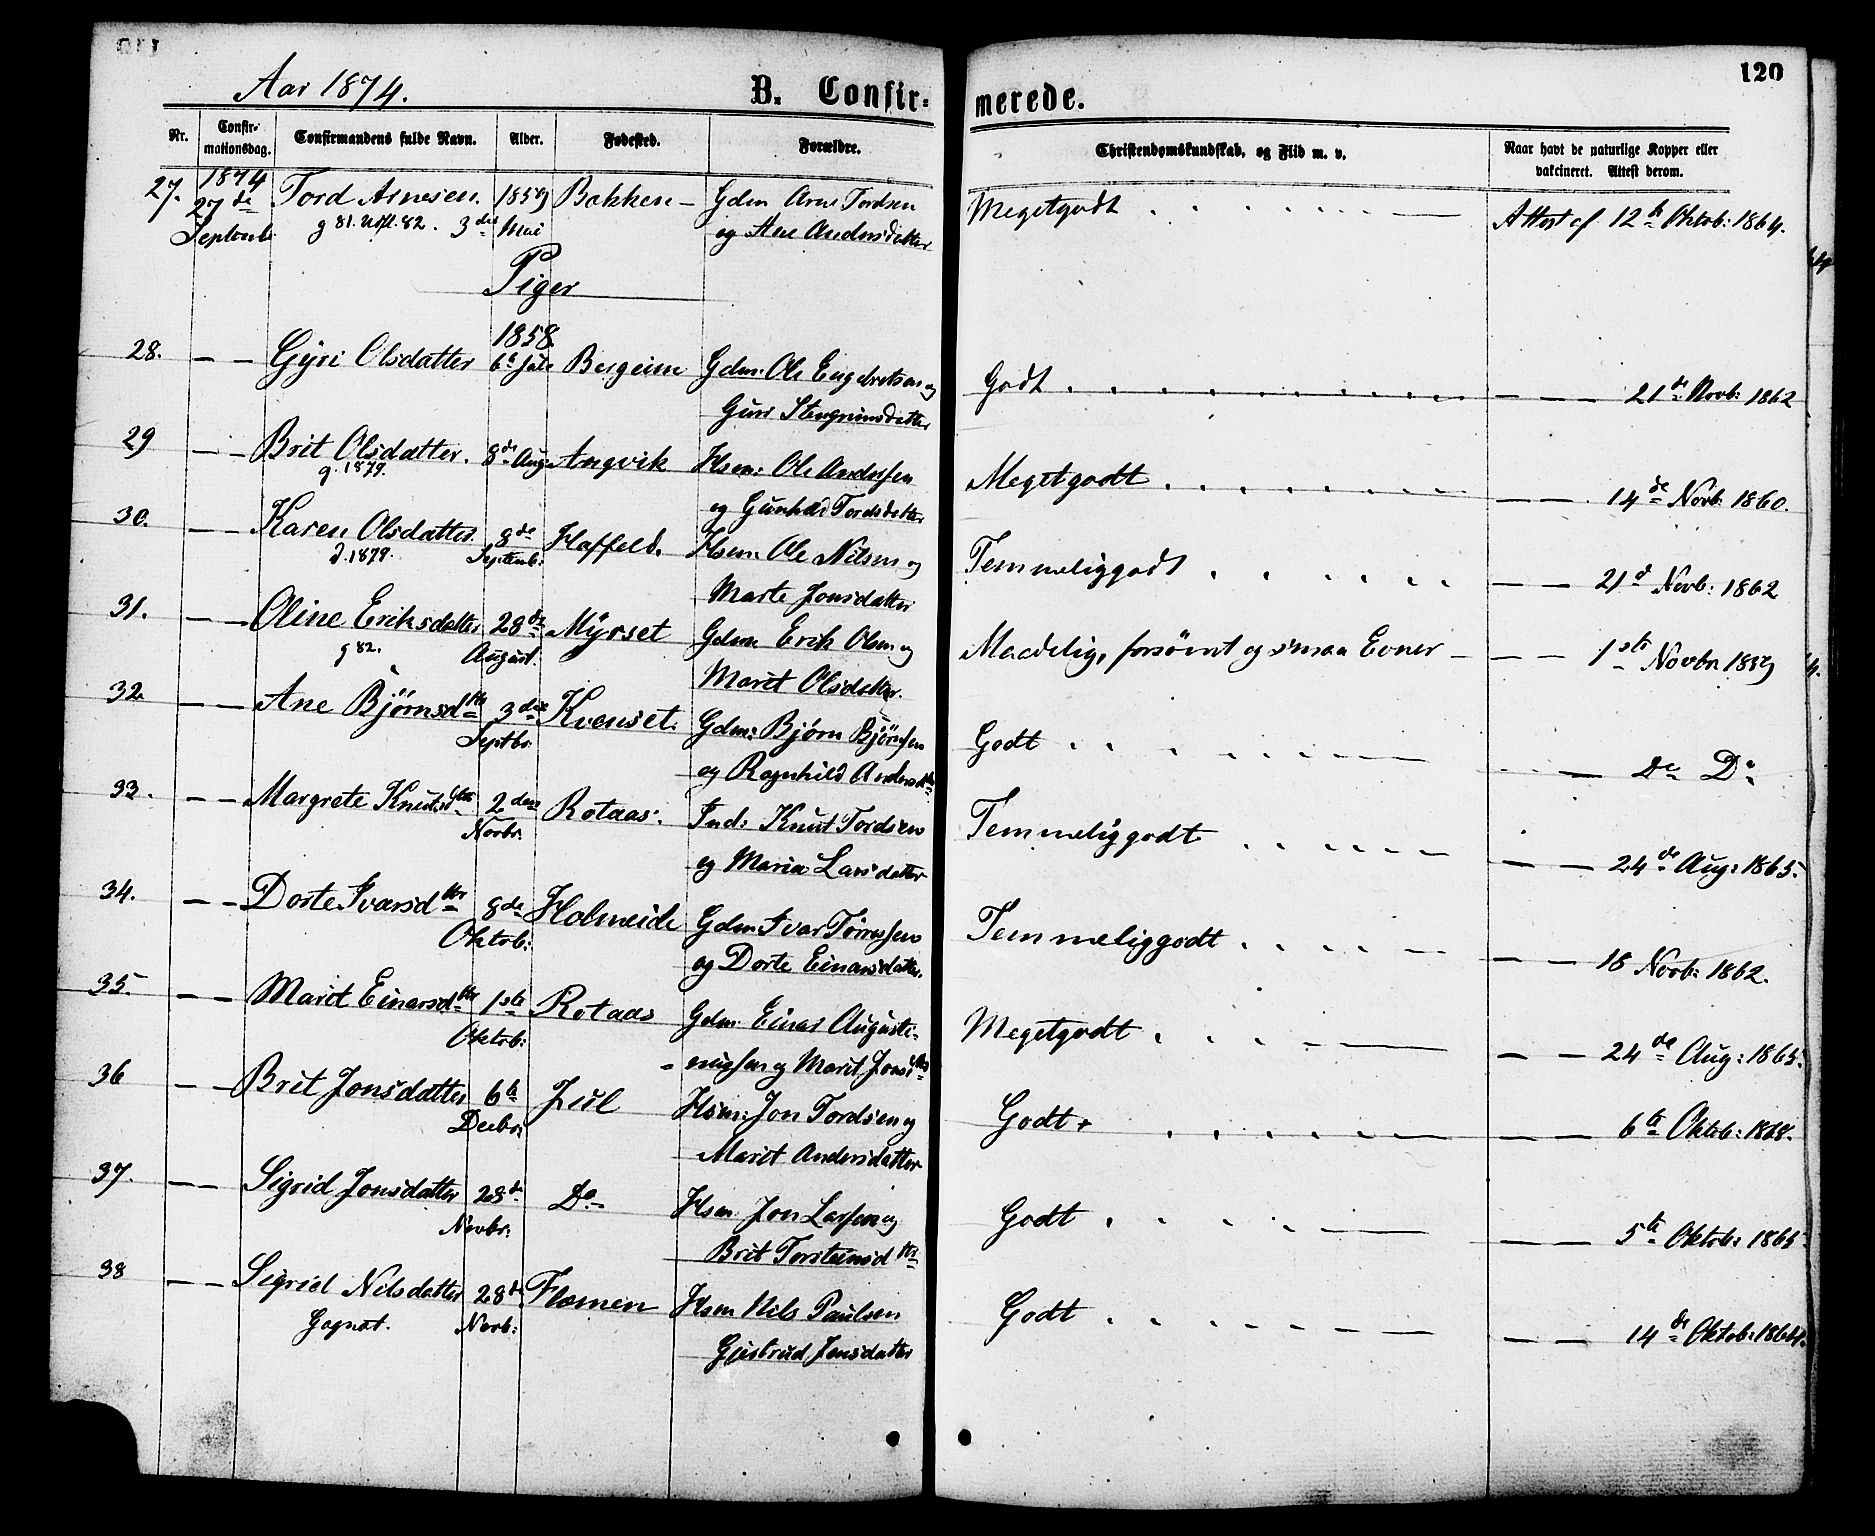 Aar 1874.
B. Confir-
merede.
120
Nr.
Confir-
mationsdag.
Confirmandens fulde Navn.
Alder.
Fødested.
Forældre.
Christendomskundskab, og Flid m. v.
Naar havt de naturlige Kopper eller
vakcineret. Attest derom.
27. 1874 27de Septemb. Tord Arnesen. 1859 Bakken - Gdm Arne Tordsen Megetgodt Attest af 12te Oktob: 1864.
g 81. Udfl. 82. 3die Mai og Ane Andersdatter
Piger
1858.
28. — — Gjøri Olsdatter 6te Juli Bergeim Gdm: Ole Engebretsen og Godt — — 21de Novb: 1862
Guri Stengrimsdatter
29 — — Brit Olsdatter. 8de Aug Angvik Hsm: Ole Andersen Megetgodt — — 14de Novb: 1860.
g. 1879. og Gunhild Tordsdatter
30. — — Karen Olsdatter 8de Haffeld. Hsm: Ole Nilsen og Temmeliggodt — — 21d Novb: 1862
d. 1879. Septemb: Marte Jonsdatter
31. — — Oline Eriksdatter 28de Myrset Gdm Erik Olsen og Maadelig, forsömt og smaa Evner — — — 1ste Novbr
g 82. August. Marit Olsdatter.
32 — — Ane Bjørnsdtr 3die Kvenset. Gdm: Bjørn Bjørnsen Godt — Do Do
Septbr. og Ragnhild Andersdtr
33. — — Margrete Knutsdtr 2den Rotaas. Ind: Knut Tordsen Temmeliggodt — — 24de Aug: 1865.
Novbr. og Maria Larsdatter
34. — — Dorte Ivarsdtr 8de Holmeide Gdm Ivar Tørresen Temmeliggodt — — 18 Novb: 1862.
Oktob: og Dorte Einarsdatter.
35. — — Marit Einarsdtr 1ste Rotaas Gdm: Einar Augusti- Megetgodt — — 24de Aug: 1865.
Oktob: - nussen og Marit Jonsdtr
36 — — Brit Jonsdatter 6te Hsm: Jon Tordsen og Godt. — — 6te Oktob:
Decbr: Marit Andersdatter
37. — — Sigrid Jonsdatter 28de Do Hsm Jon Larsen og Godt — — 5te Oktob: 1865
Novbr: Brit Torsteinsdtr
38 — — Sigrid Nilsdatter 28de Flemmen Hsm Nils Paulsen Godt — — 14de Oktob: 1864.
Gagnat. Novb: Gjertrud Jensdatter